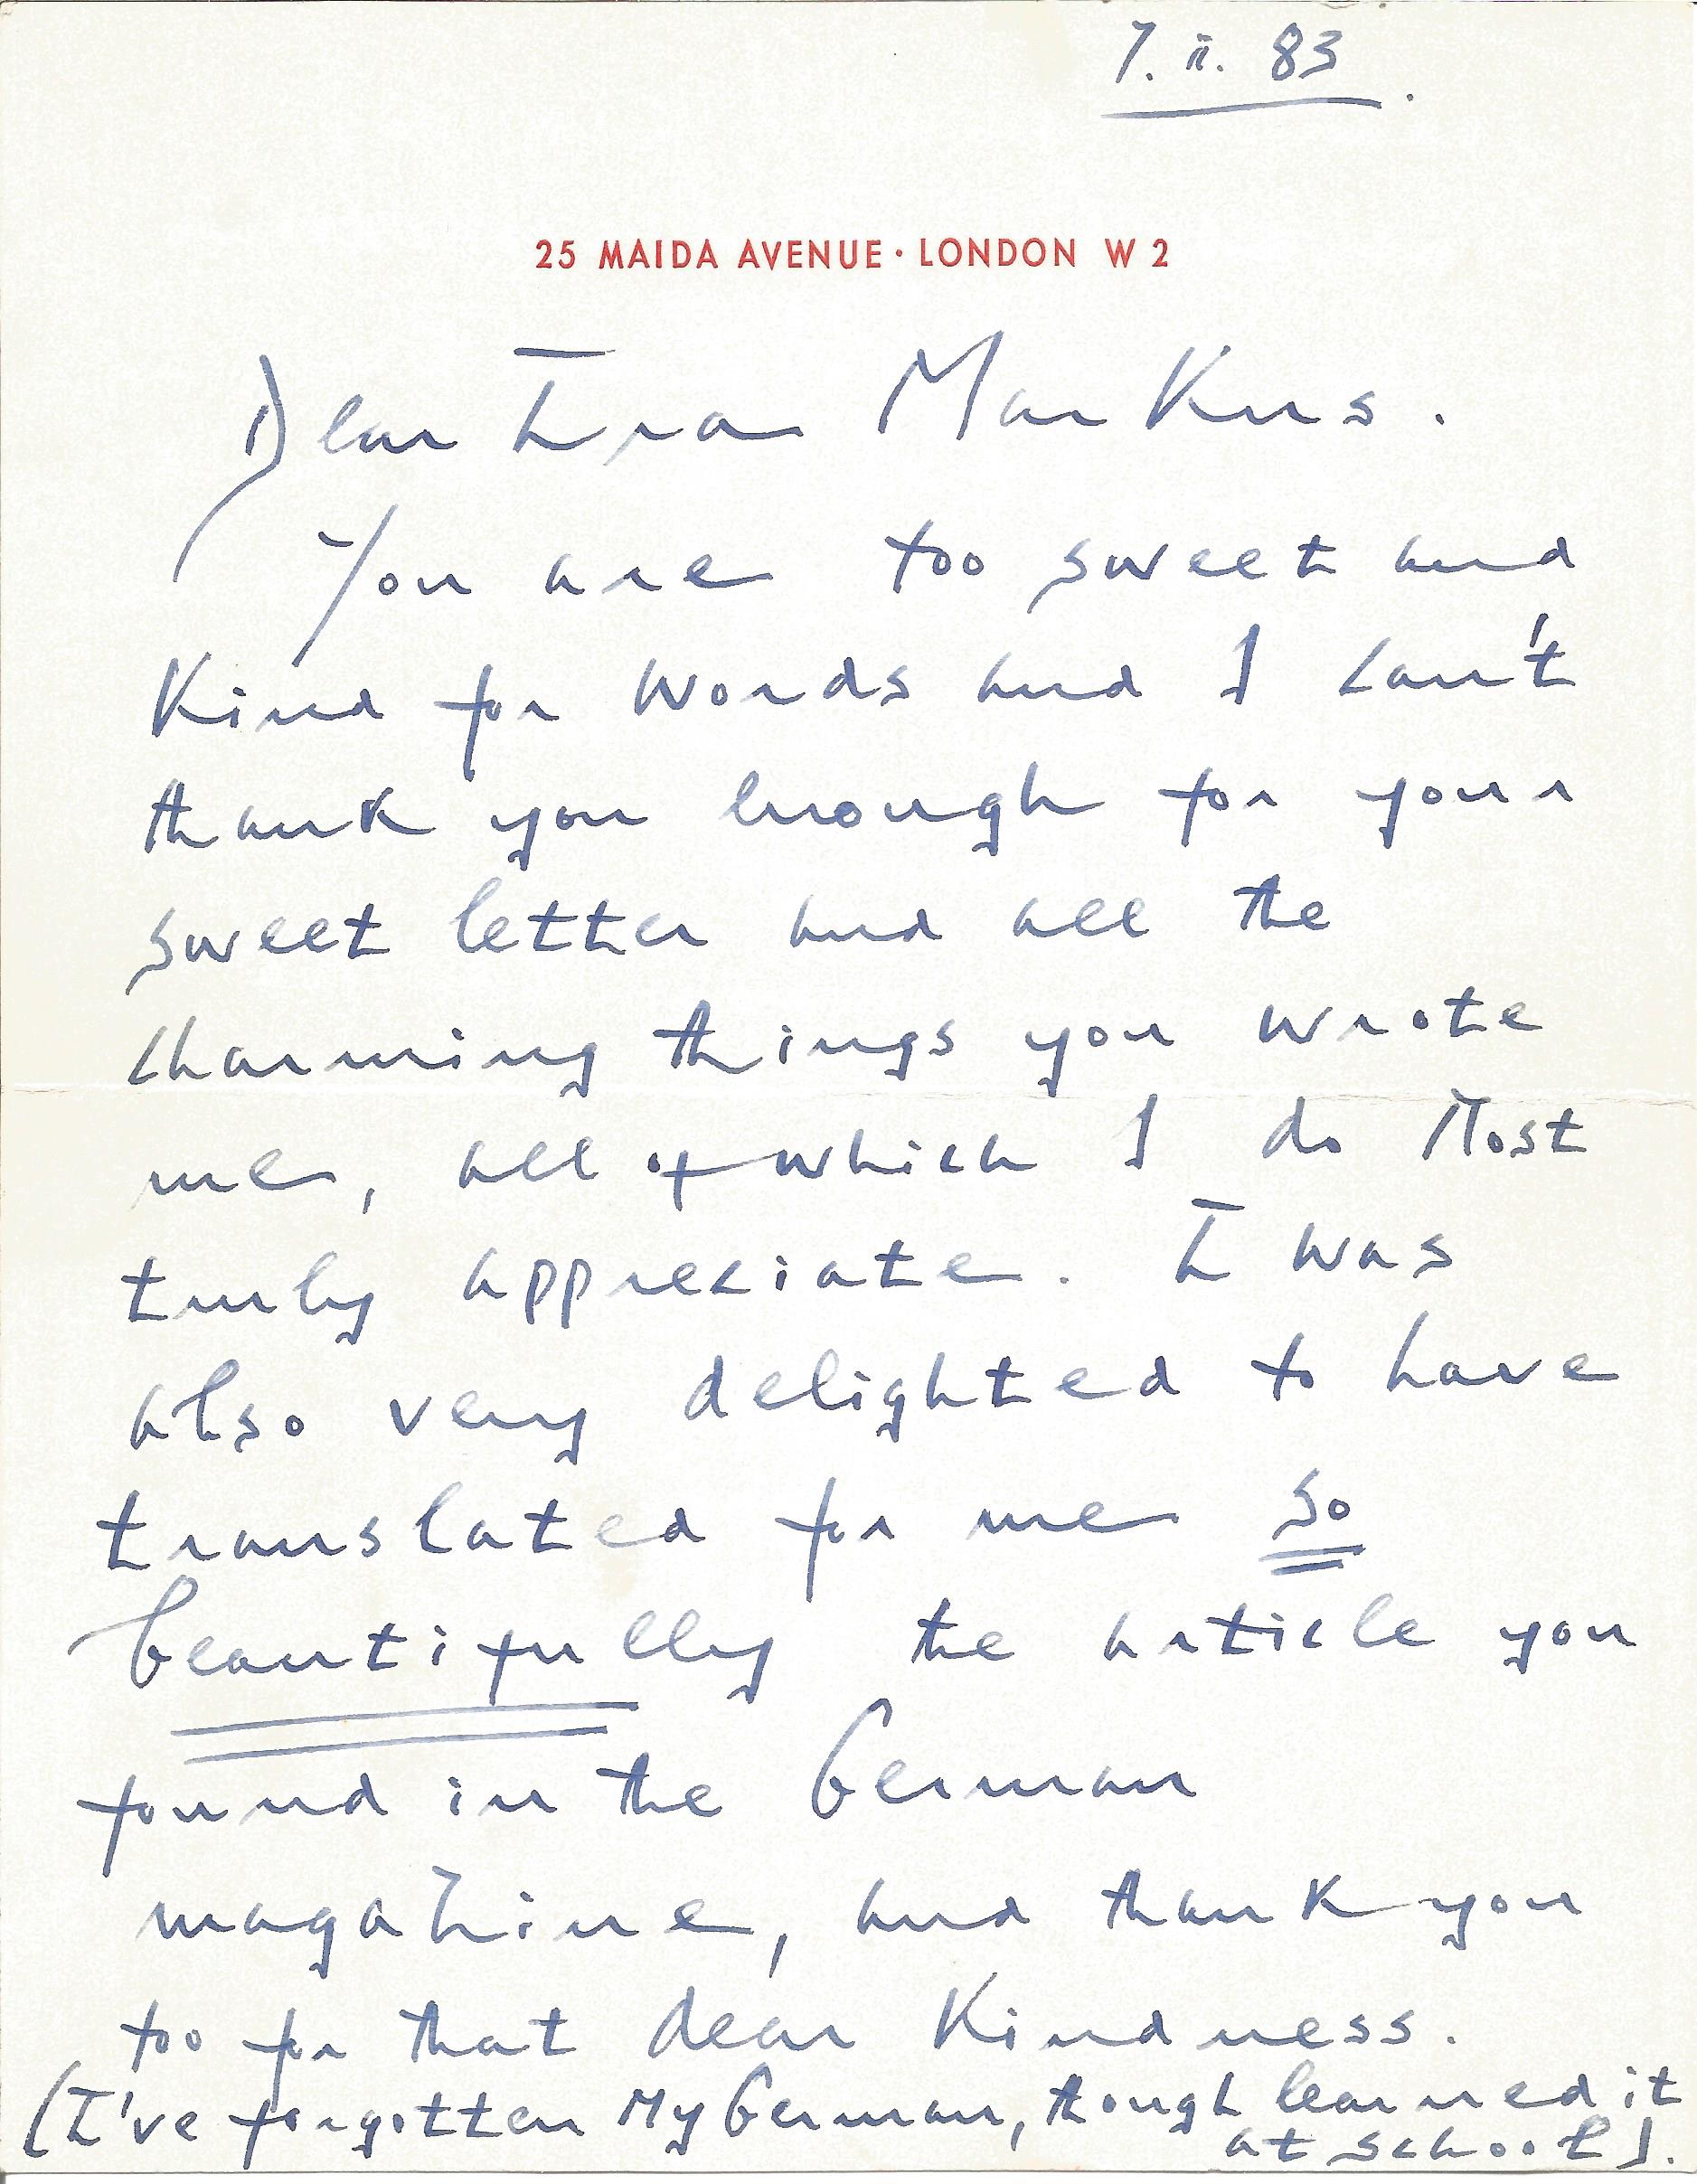 7. ii. 83.
25 MAIDA AVENUE · LONDON W 2
Dear Ira Markus.
You are too sweet and
Kind for words and I can't
thank you enough for your
sweet letter and all the
charming things you wrote
me, all of which I do Most
truly appreciate. I was
also very delighted to have
translated for me so
beautifully the article you
found in the German
magazine, and thank you
too for that dear Kindness.
(I've forgotten My German, though learned it
at school).